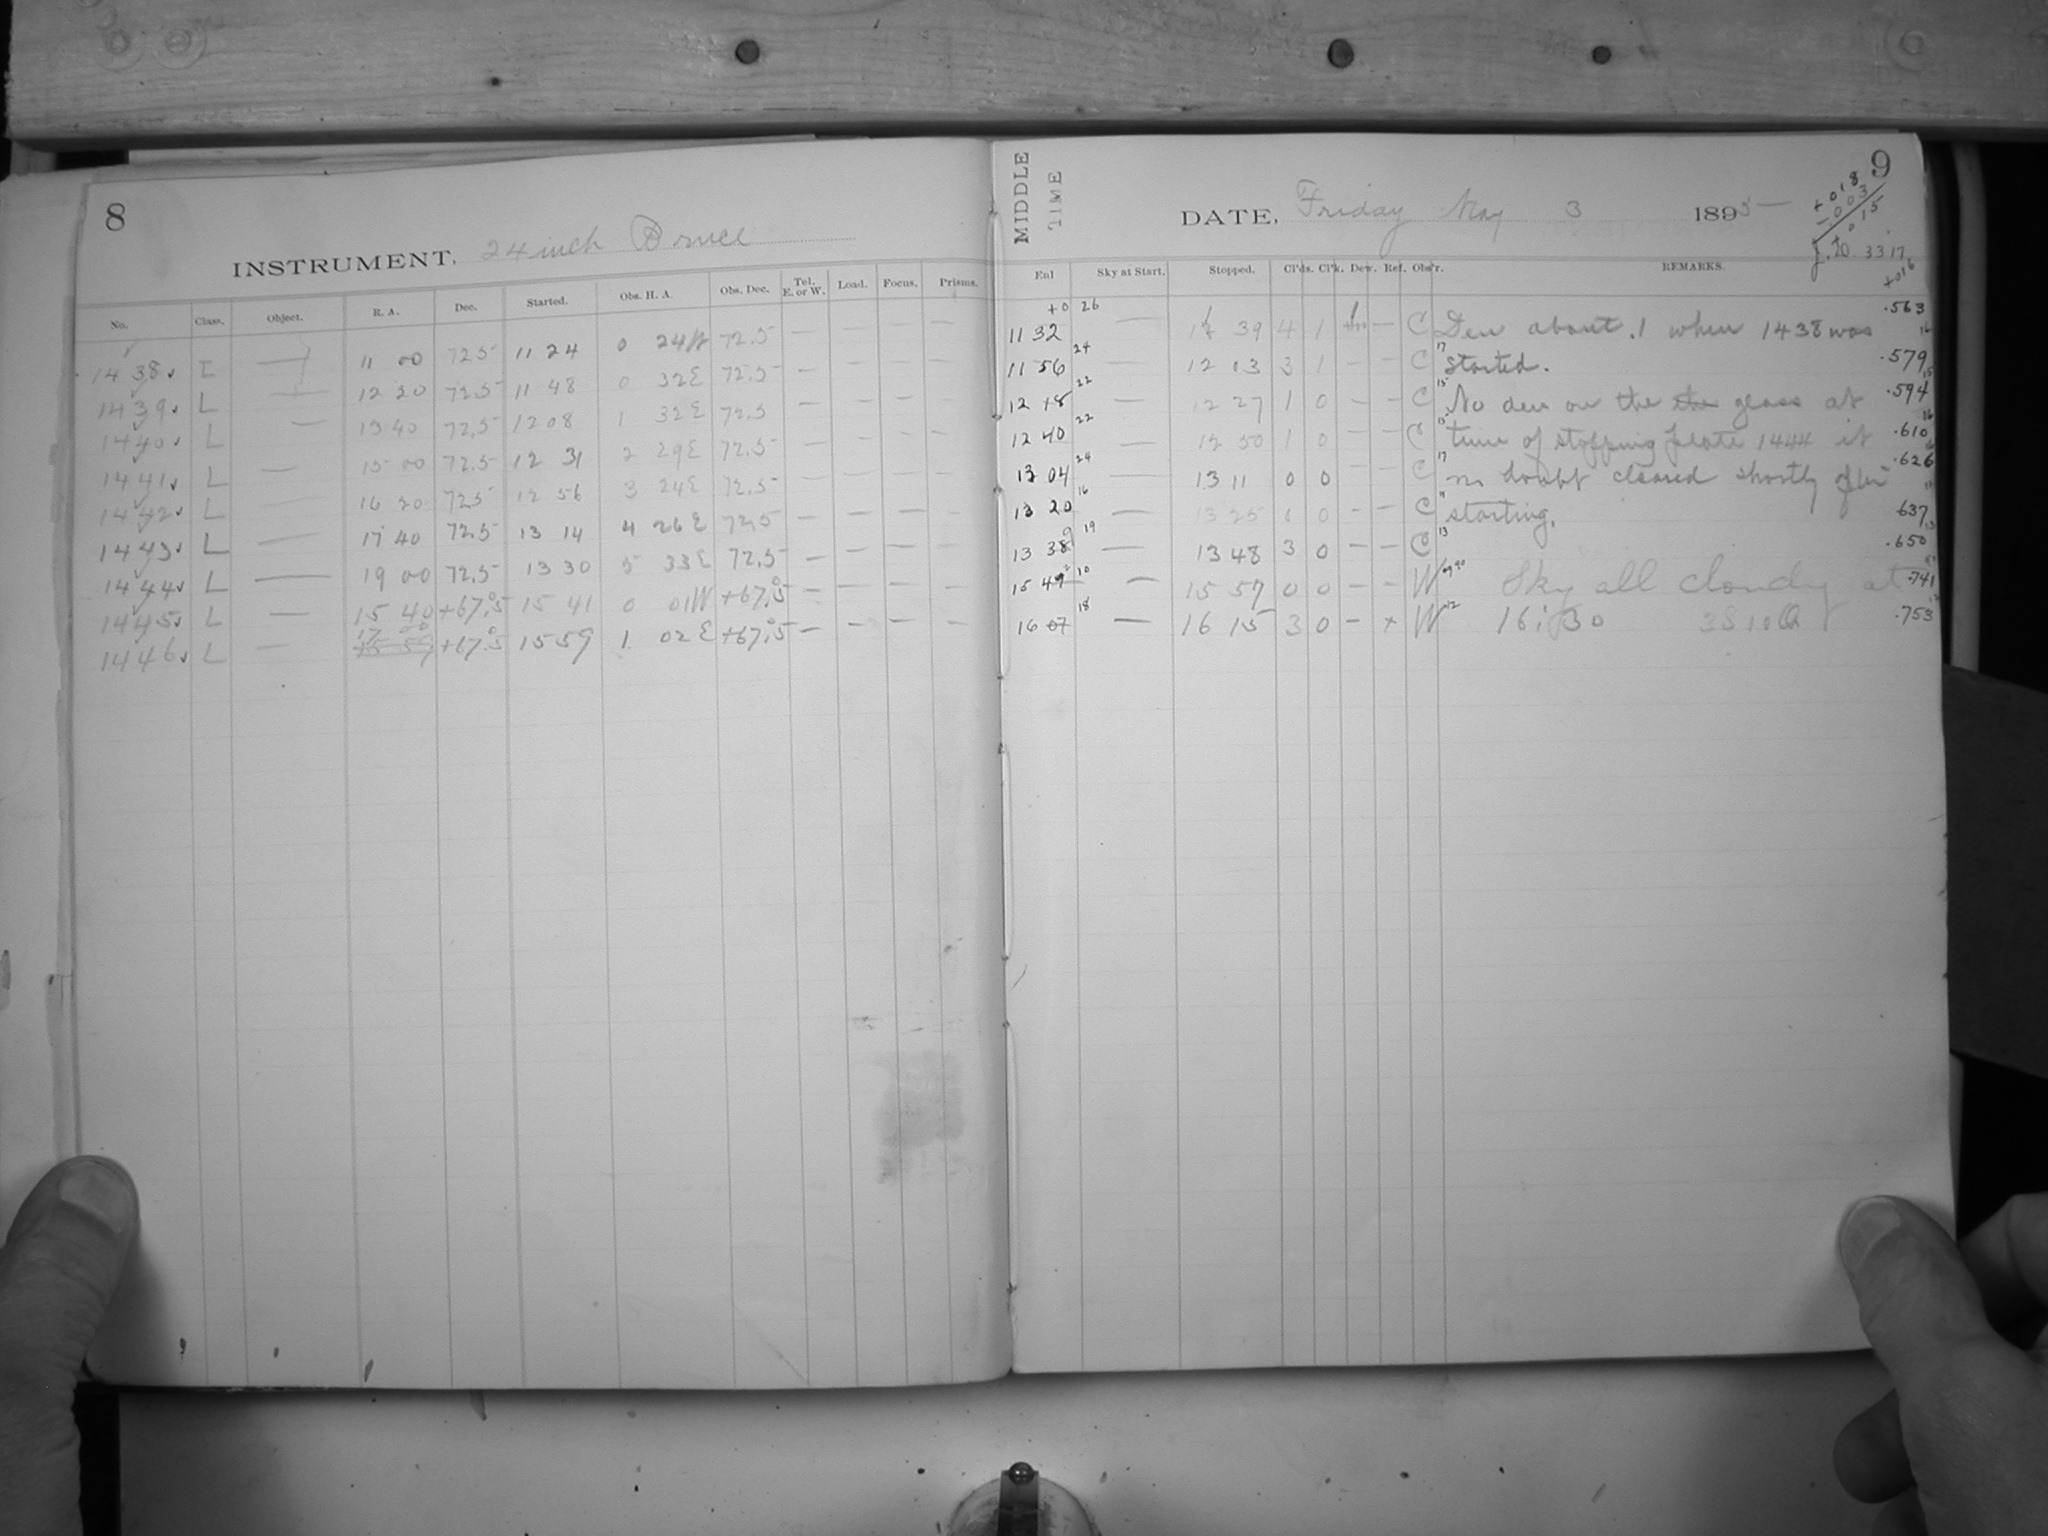 8
INSTRUMENT, 24 inch Bruce
No. Class. Object. R. A. Dec. Started. Obs. H. A. Obs. Dec. Tel. E. or W. Load. Focus. Prisms.
1438 L — 11 00 72.5 11 24 0 24W 72.5 — — — —
1439 L — 12 20 72.5 11 48 0 32E 72.5 — — — —
1440 L — 13 40 72.5 12 08 1 32E 72.5 — — — —
1441 L — 15 00 72.5 12 31 2 29E 72.5 — — — —
1442 L — 16 20 72.5 12 56 3 24E 72.5 — — — —
1443 L — 17 40 72.5 13 14 4 26E 72.5 — — — —
1444 L — 19 00 72.5 13 30 5 33E 72.5 — — — —
1445 L — 15 40 +67.5 15 41 0 01W +67.5 — — — —
1446 L — 17 00 +67.5 15 59 1 02E +67.5 — — — —
9
MIDDLE TIME
DATE, Friday May 3 1895
+018
-003
+015
J.D. 3317
+016
Ex1 Sky at Start. Stopped. Cl'ds. Cl'k. Dew. Ref. Obs'r. REMARKS.
+0 26
11 32 — 11 39 4 1 1 — C Dew about .1 when 1438 was .563
11 56 24 — 12 03 3 1 — — C 17 started. .579
12 18 22 — 12 27 1 0 — — C 15 No dew on the the glass at .594
12 40 22 — 12 50 1 0 — — C 15 time of stopping plate 1444 it .610
13 04 24 — 13 11 0 0 — — C 17 no doubt cleared shortly after .626
13 20 16 — 13 25 0 0 — — C 11 starting. .637
13 39 19 — 13 48 3 0 — — C 13 .650
15 49 10 — 15 57 0 0 — — W Sky all cloudy at .741
16 07 18 — 16 15 3 0 — + W 12 16:30 3S 10Q .753